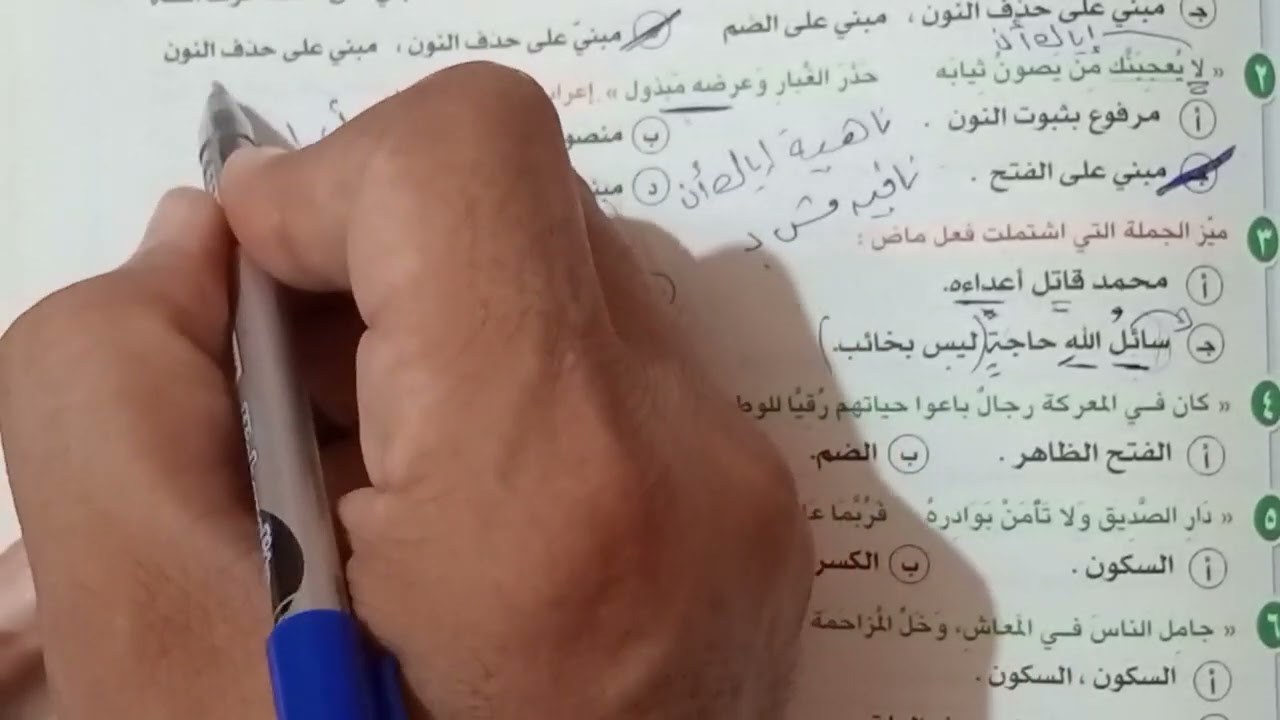 ج مبني على حذف النون ، مبني على الضم
د مبنيّ على حذف النون ، مبني على حذف النون
إياك أن
٢ « لا يُعجبَنَّك مَن يَصونُ ثيابَه حَذَرَ الغُبارِ وَعرضه مَبذول » . إعراب
أ مرفوع بثبوت النون . ب منصو
ناهية إياك أن
جـ مبني على الفتح . د مبن
نافيه مش
٣ ميّز الجملة التي اشتملت فعل ماض :
أ محمد قاتل أعداءه.
جـ سائلُ الله حاجةٍ (ليس بخائب.)
٤ « كان في المعركة رجالٌ باعوا حياتهم رُقيًّا للوط
أ الفتح الظاهر . ب الضم.
٥ « دَارِ الصَّدِيق وَلا تَأمَنْ بَوَادِرهُ فَرُبَّمَا عَا
أ السكون . ب الكسر
٦ « جامِل الناسَ في المَعاشِ، وَخَلِّ المُزاحَمة
أ السكون ، السكون .